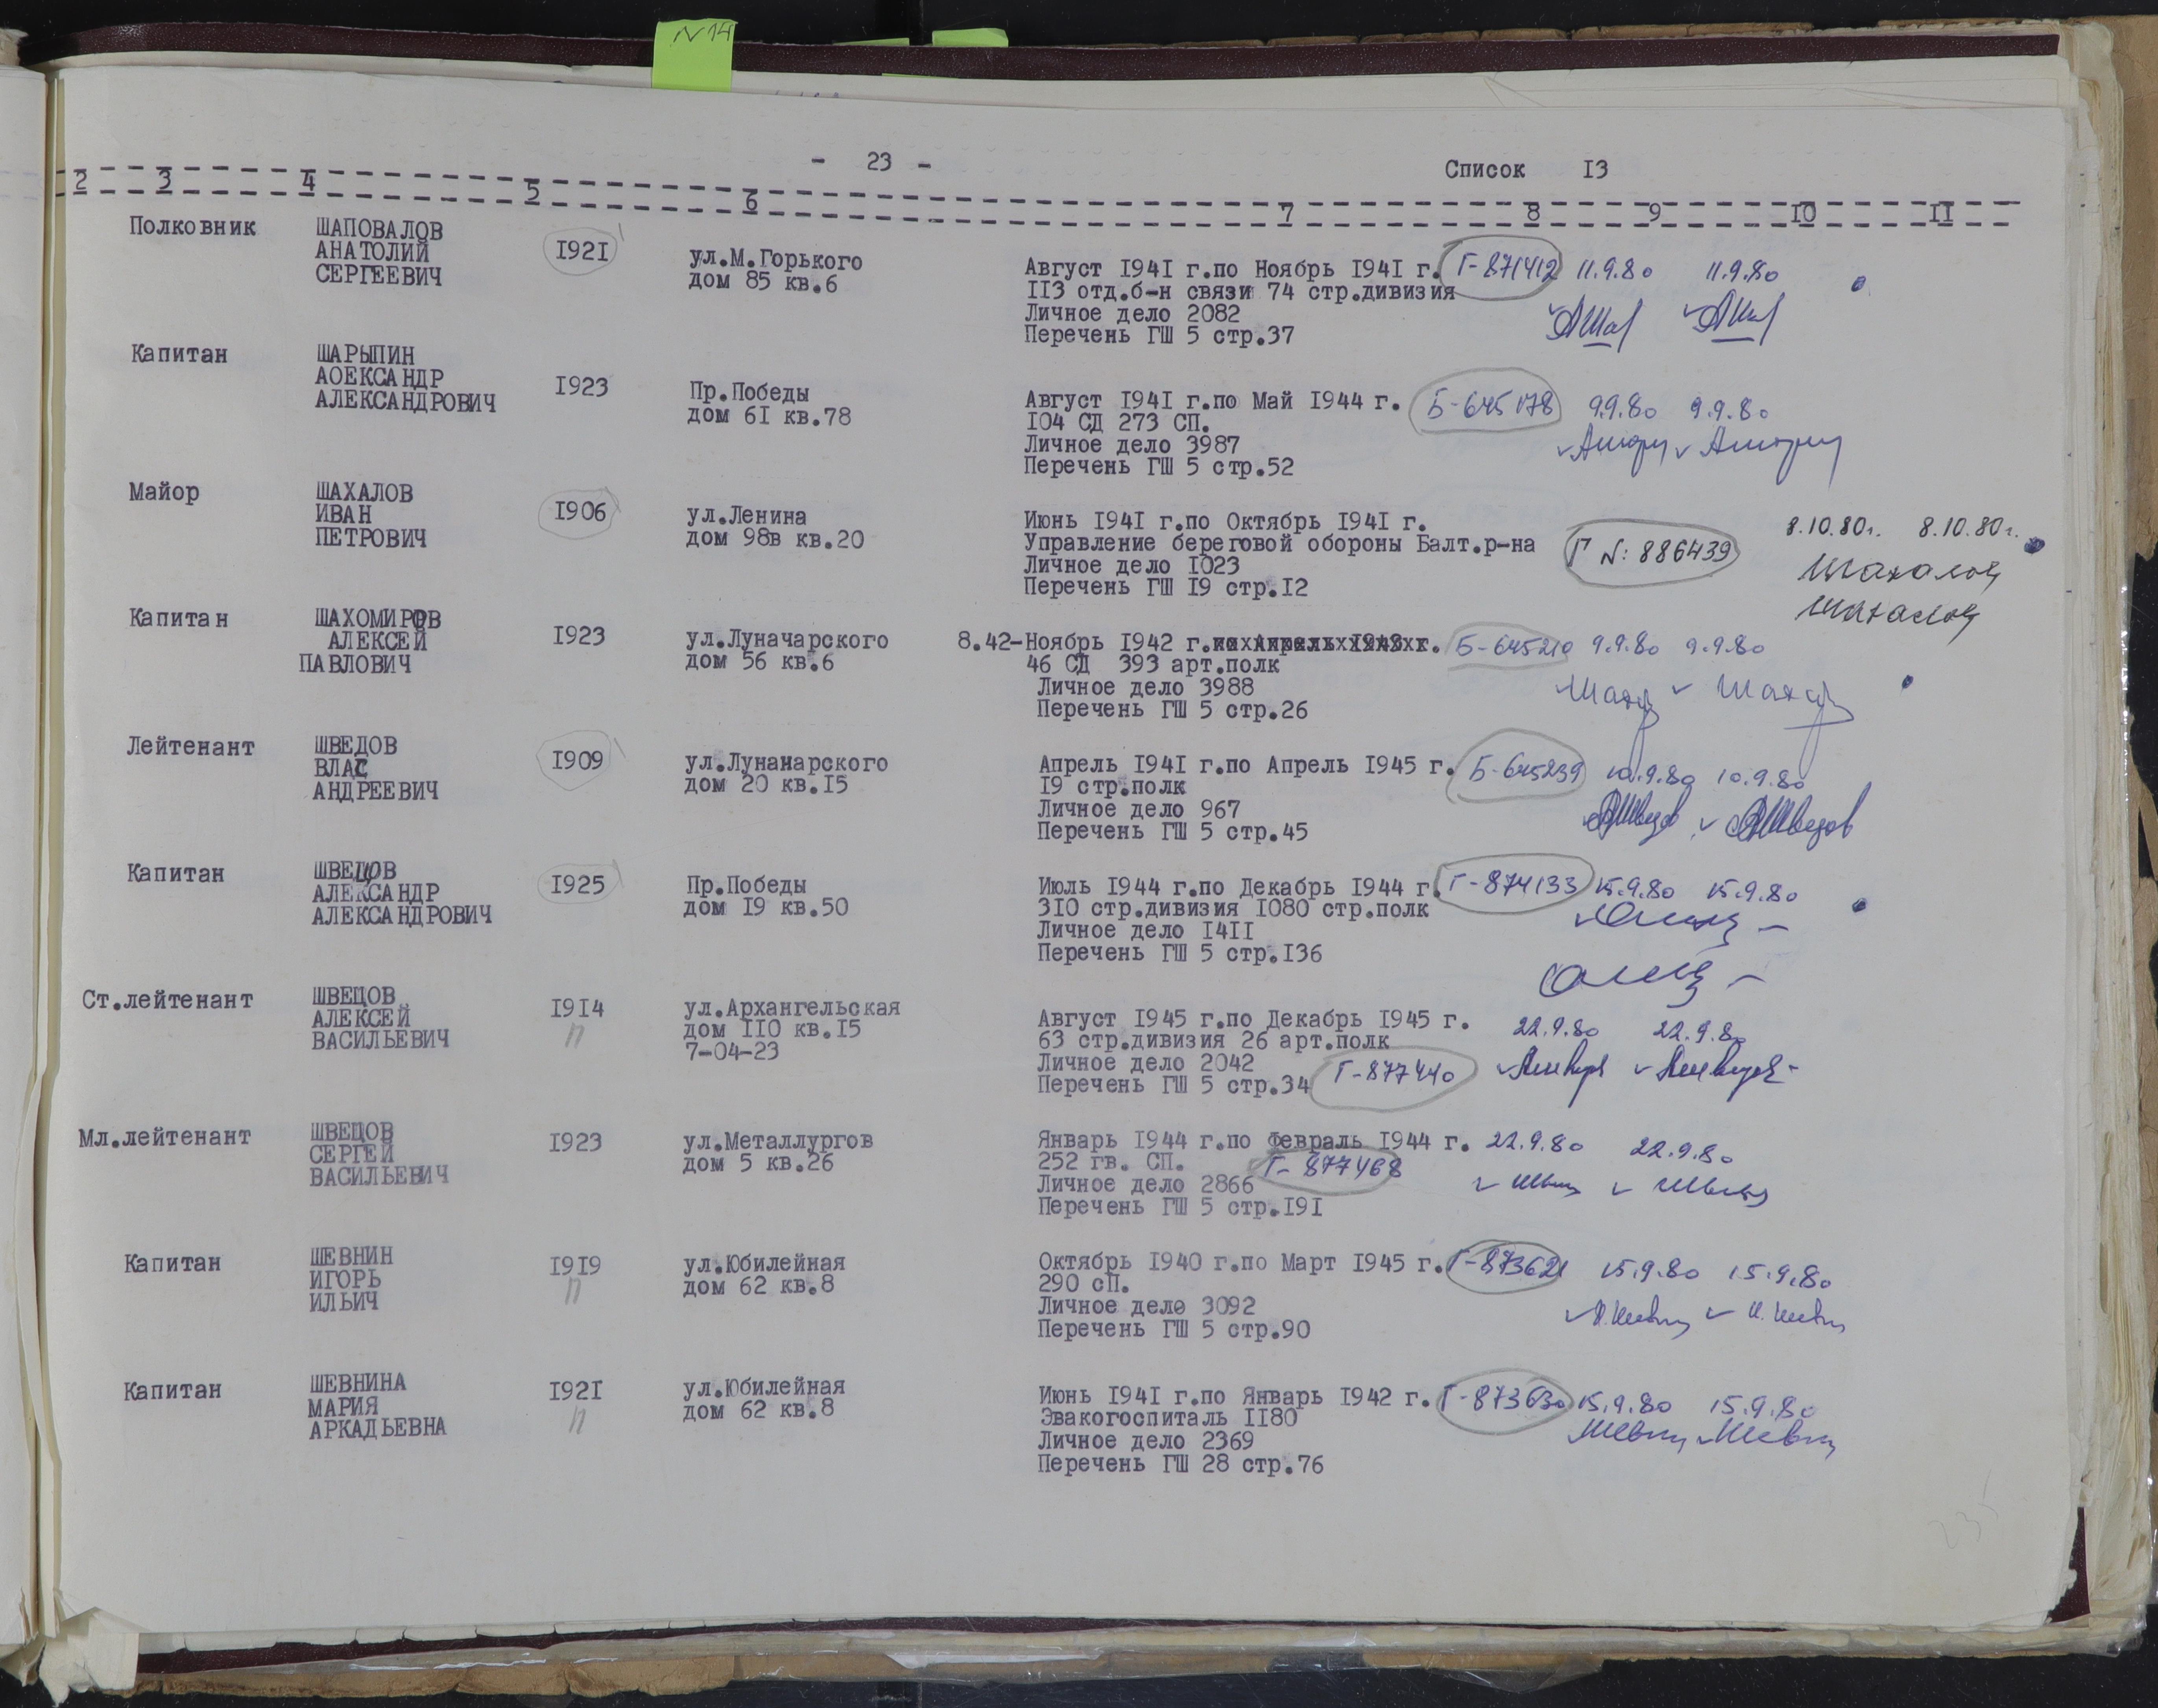 N 14
- 23 -
Список I3
2 3 4 5 6 7 8 9 I0 II
Полковник ШАПОВАЛОВ
АНАТОЛИЙ I92I ул.М.Горького Август I94I г.по Ноябрь I94I г. Г-871412 11.9.80 11.9.80
СЕРГЕЕВИЧ дом 85 кв.6 II3 отд.б-н связи 74 стр.дивизия
Личное дело 2082
Перечень ГШ 5 стр.37
Капитан ШАРЫПИН
АОЕКСАНДР I923 Пр.Победы Август I94I г.по Май I944 г. Б-645178 9.9.80 9.9.80
АЛЕКСАНДРОВИЧ дом 6I кв.78 I04 СД 273 СП.
Личное дело 3987
Перечень ГШ 5 стр.52
Майор ШАХАЛОВ
ИВАН I906 ул.Ленина Июнь I94I г.по Октябрь I94I г. 8.10.80г. 8.10.80г.
ПЕТРОВИЧ дом 98в кв.20 Управление береговой обороны Балт.р-на Г N: 886439
Личное дело I023 Шахалов
Перечень ГШ I9 стр.I2 Шахалов
Капитан ШАХОМИРОВ
АЛЕКСЕЙ I923 ул.Луначарского 8.42-Ноябрь I942 г. Б-645210 9.9.80 9.9.80
ПАВЛОВИЧ дом 56 кв.6 46 СД 393 арт.полк
Личное дело 3988
Перечень ГШ 5 стр.26
Лейтенант ШВЕДОВ
ВЛАС I909 ул.Лунанарского Апрель I94I г.по Апрель I945 г. Б-645239 10.9.80 10.9.80
АНДРЕЕВИЧ дом 20 кв.I5 I9 стр.полк
Личное дело 967 АШведов АШведов
Перечень ГШ 5 стр.45
Капитан ШВЕЦОВ
АЛЕКСАНДР I925 Пр.Победы Июль I944 г.по Декабрь I944 г. Г-874133 15.9.80 15.9.80
АЛЕКСАНДРОВИЧ дом I9 кв.50 3I0 стр.дивизия I080 стр.полк
Личное дело I4II
Перечень ГШ 5 стр.I36
Ст.лейтенант ШВЕЦОВ
АЛЕКСЕЙ I9I4 ул.Архангельская Август I945 г.по Декабрь I945 г. 22.9.80 22.9.80
ВАСИЛЬЕВИЧ п дом II0 кв.I5 63 стр.дивизия 26 арт.полк
7-04-23 Личное дело 2042
Перечень ГШ 5 стр.34 Г-877440
Мл.лейтенант ШВЕЦОВ
СЕРГЕЙ I923 ул.Металлургов Январь I944 г.по Февраль I944 г. 22.9.80 22.9.80
ВАСИЛЬЕВИЧ дом 5 кв.26 252 гв. СП. Г-877468
Личное дело 2866
Перечень ГШ 5 стр.I9I
Капитан ШЕВНИН
ИГОРЬ I9I9 ул.Юбилейная Октябрь I940 г.по Март I945 г. Г-873621 15.9.80 15.9.80
ИЛЬИЧ п дом 62 кв.8 290 сП.
Личное дело 3092
Перечень ГШ 5 стр.90
Капитан ШЕВНИНА
МАРИЯ I92I ул.Юбилейная Июнь I94I г.по Январь I942 г. Г-873630 15.9.80 15.9.80
АРКАДЬЕВНА п дом 62 кв.8 Эвакогоспиталь II80
Личное дело 2369
Перечень ГШ 28 стр.76